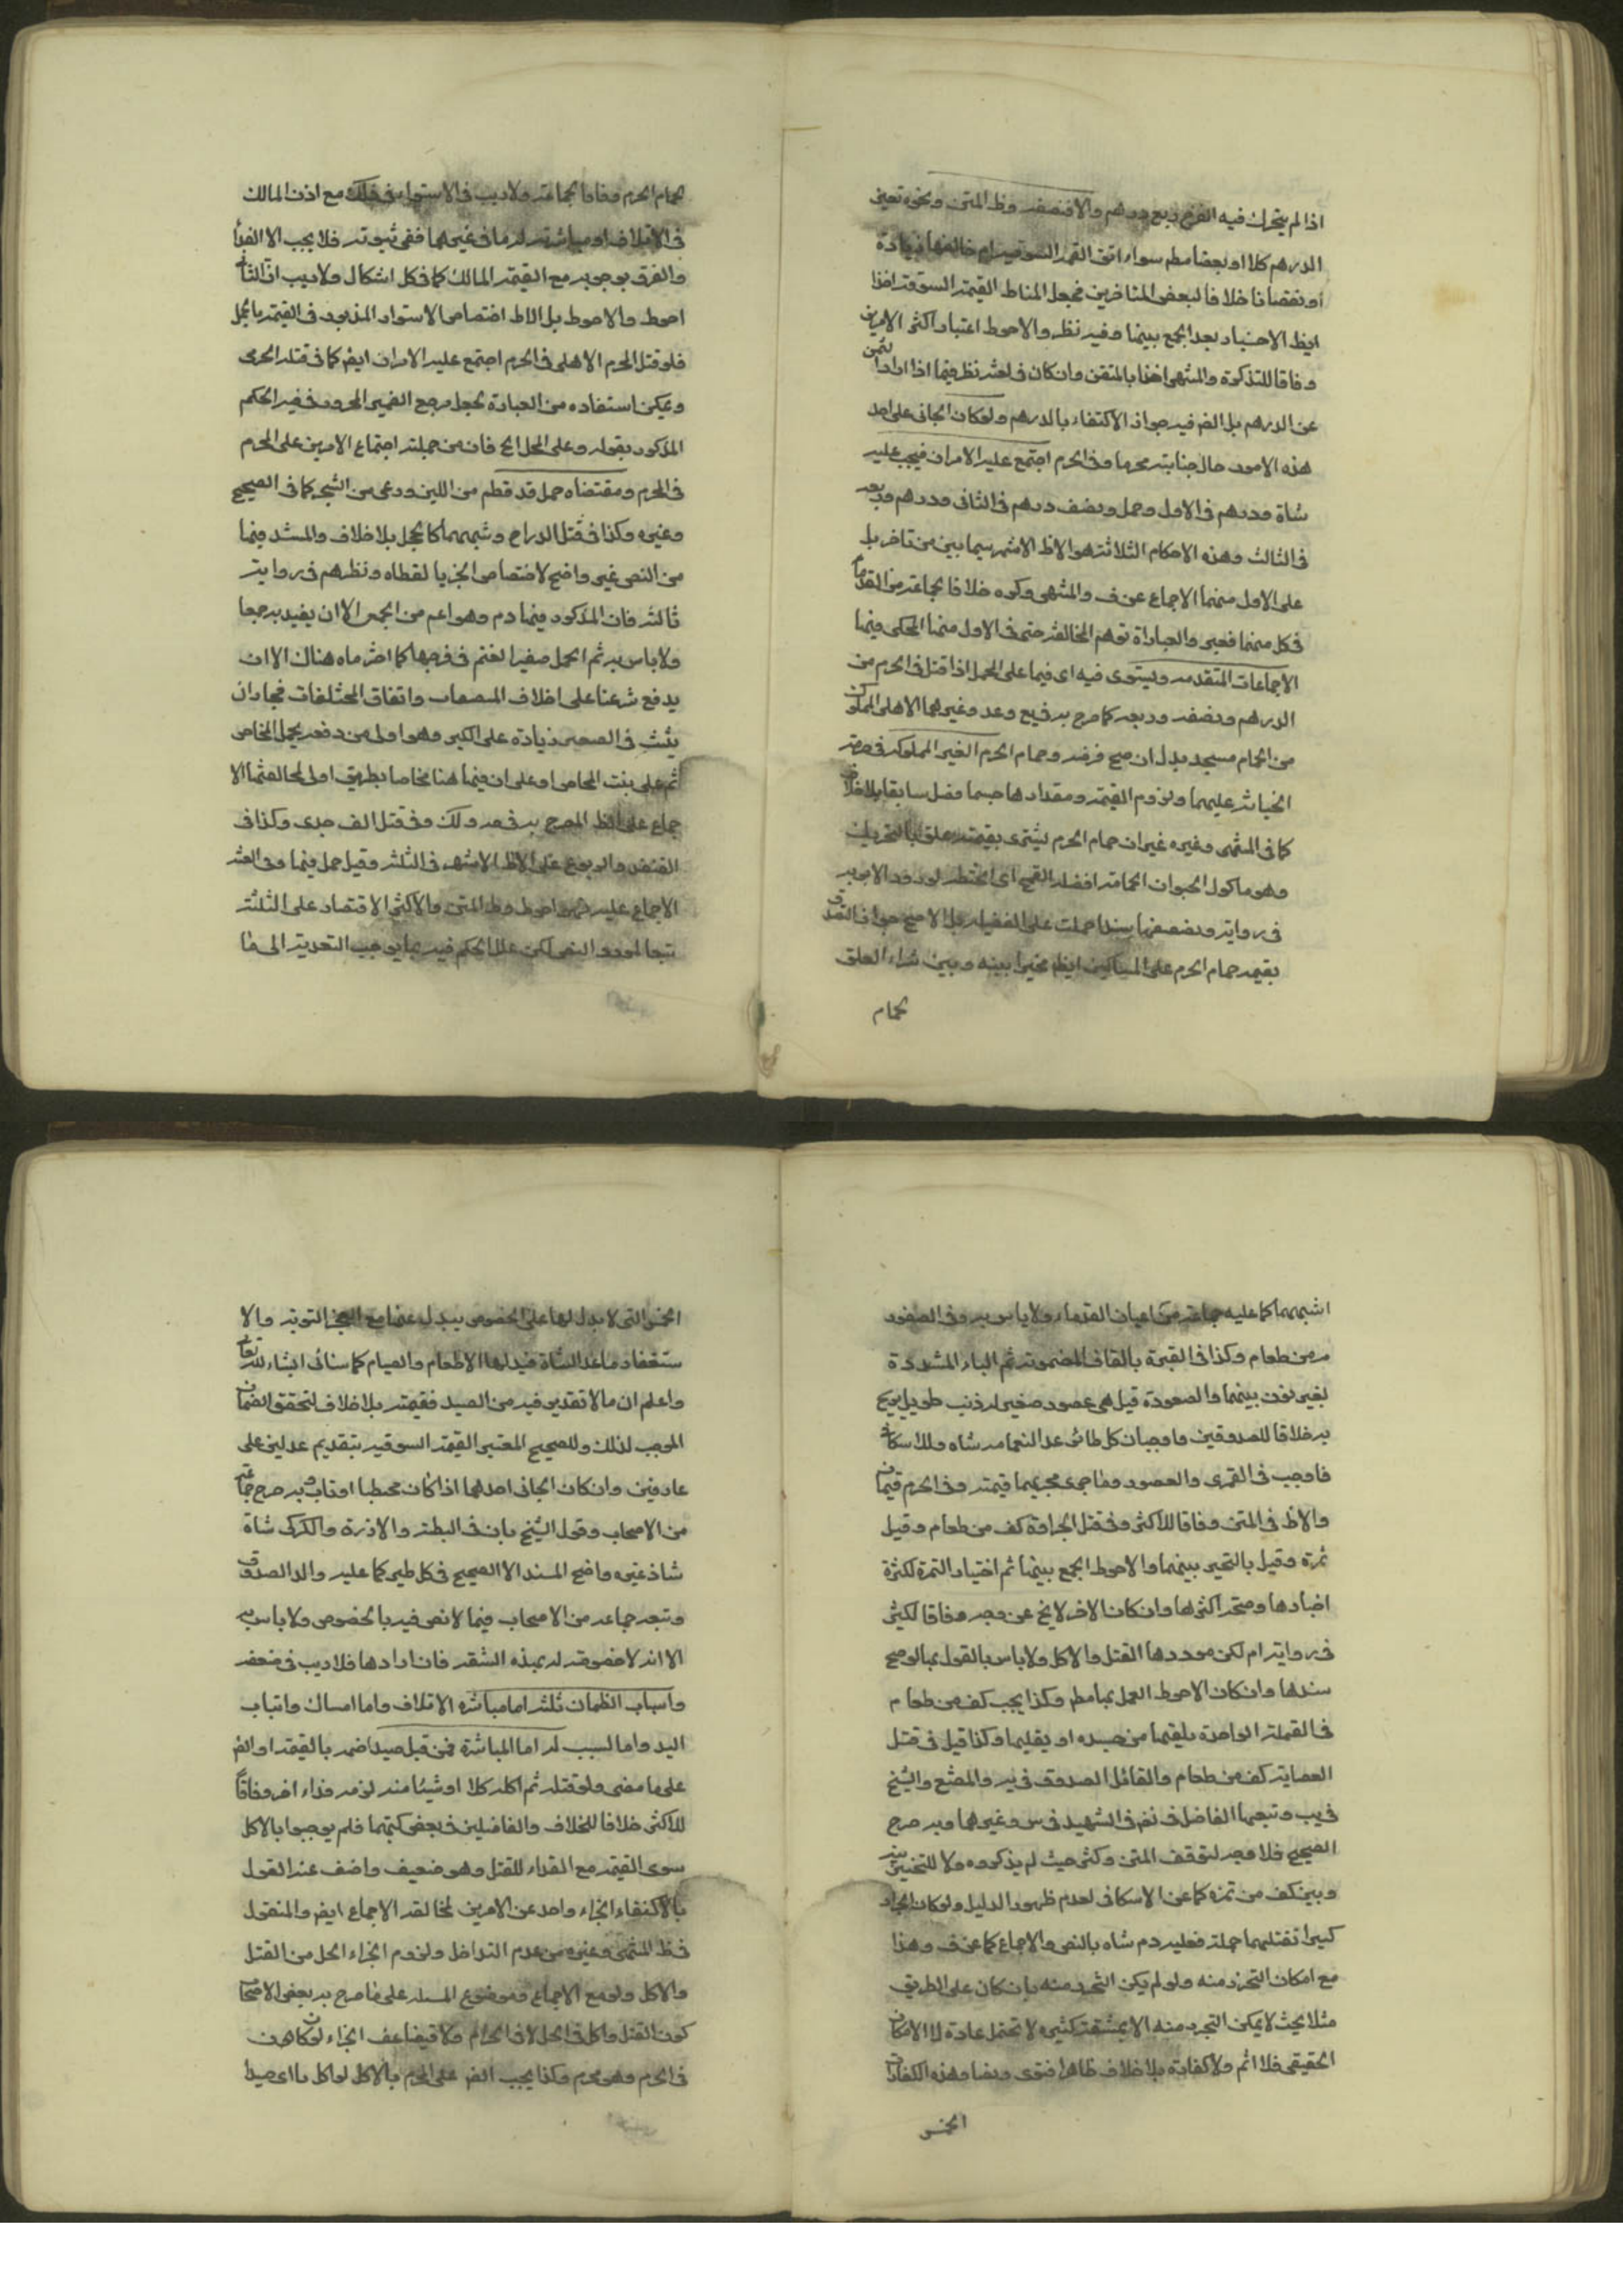 اذا لم يتحرك فيه الفرخ ربع درهم والا فنصفه وظ المتن ونحوه تعين
الدرهم كلا او بعضا مطم سواء اتفق القيمة السوقيه ام خالفها زيادة
او نقصانا خلافا لبعض المتاخرين فجعل المناط القيمة السوقية اخذا
ايظ الاخبار بعد الجمع بينها وفيه نظر والاحوط اعتبار اكثر الامرين
وفاقا للتذكرة والمنتهى اخذا بالمتقن وان كان في لعثه نظر فيما اذا ارادا ثمن
عن الدرهم بل الضر فيه جواز الاكتفاء بالدرهم ولو كان الجاني على احد
هذه الامور حال جنايته محرما وفي الحرم اجتمع عليه الامران فيجب عليه
شاة ودرهم في الاول وحمل ونصف درهم في الثاني ودرهم وربعه
في الثالث وهذه الاحكام الثلاثة هو الاظ الاشهر سيما بين من تاخر بل
على الاول منهما الاجماع عن ف والمنتهى وكره خلافا لجماعة من القدما
في كل منهما فعبر والعباراة توهم المخالفة حتى في الاول منهما المحكى فيهما
الاجماعات المتقدمه ويستوى فيه اى فيما على الحمل اذا قتل في الحرم من
الدرهم ونصفه وربعه كما صرح به في يع وعد وغيرهما الاهلى المملوك
من الحمام مسجد بدل ان صح فرضه وحمام الحرم الغير المملوك في حرمة
الخيانة عليهما ولزوم القيمة ومقدارها حسما فصل سابقا بلا خلاف
كما في المنتهى وغيره غير ان حمام الحرم يشترى بقيمته علق بالتحريك
وهو ماكول الحيوان الحمامة افضله القمح اى الحنطة لورود الامر به
في رواية وضعفها سندا حملت على الفضيلة بل الاصح جواز التصدق
بقيمه حمام الحرم على المساكين ايظ مخيرا بينه وبين شراء العلق
لحمام
لحمام الحرم وفاقا لجماعة ولاريب في الاستواء في ذلك مع اذن المالك
في الاتلاف او مباشرته له واما في غيرهما ففى ثبوته فلا يجب الا الفداء
والفرق بوجوبه مع القيمة المالك كما في كل اشكال ولاريب ان الثاني
احوط والاحوط بل الاظ اختصاص الاستواء المذبور في القيمة بالمحل
فلو قتل المحرم الاهلى في الحرم اجتمع عليه الامران ايض كما في قتله الحرمى
ويمكن استفاده من العبارة بجعل مرجع الضمير المجرور في فيه الحكم
المذكور بقوله وعلى المحل الخ فان من جملته اجتماع الامرين على المحرم
في الحرم ومقتضاه حمل قد فطم من اللبن ورعى من الشجر كما في الصحيح
وغيره وكذا في قتل الدراج وشبههما كالحجل بلا خلاف والمستند فيها
من النص غير واضح لاختصاص الخبر بالقطاه ونظرهم في رواية
ثالثه فان المذكور فيها دم وهو اعم من الحمل الا ان يقيد به جمعا
ولا باس به ثم الحمل صغير الغنم في فرجها كما اخترناه هناك الا ان
يدفع شرعنا على اخلاف المصعاب واتفاق المختلفات فجاز ان
يثبت في الصغير زيادة على الكبير وهو اولى من دفعه بحمل المخاض
ثم على بنت المخاض او على ان فيها هنا مخاضا بطريق اولى لمخالفتها الا
جماع على الظ المصرح به في عد وكك وفي قتل الف جدى وكذا في
القنفذ واليربوع على الاظ الاشهر في الثلثة وقيل حمل فيها وفي الغنية
الاجماع عليه فهو احوط وظ المتن والاكثر الاقتصار على الثلثة
تبعا لمورد النص لكن علل الحكم فيه بما يوجب التعدية الى ما
اشبهها كما عليه جماعة من اعيان القدماء ولا باس به وفي العصفور
مد من طعام وكذا في القبرة بالقاف المضمومة ثم الباء المشددة
بغير نون بينهما والصعوة قيل هى عصفور صغير له ذنب طويل يرمح
به خلافا للصدوقين فاوجبا في كل طائر عدا النعامه شاه وللاسكافي
فاوجب في القمرى والعصفور وما جرى مجريهما قيمته وفي الحرم قيمتان
والاظ في المتن وفاقا للاكثر وفي قتل الجرادة كف من طعام وقيل
تمرة وقيل بالتخير بينهما والاحوط الجمع بينهما ثم اختيار التمرة لكثرة
اخبارها وصحة اكثرها وان كان الاخر لا يخ عن وجه وفاقا لكثير
في رواية ام لكن موردها القتل والاكل ولا باس بالقول بها لو صح
سندها وان كان الاحوط العمل بها مطم وكذا يجب كف من طعام
في القملة الواحدة يلقيها من جسده او يقليها وكذا قيل في قتل
العصاية كف من طعام والقائل الصدوق في يه والمقنع والشيخ
في يب وتبعهما الفاضل في نفر في الشهيد في س وغيرهما وبه صرح
الصحيح فلا وجه لتوقف المتن وكثر حيث لم يذكروه ولا للتخيير بينه
وبين كف من تمره كما عن الاسكافي لعدم ظهور الدليل ولو كان الجراد
كثيرا تقتلهما جملة فعليه دم شاه بالنص والاجماع كما عن ف وهذا
مع امكان التحرز منه ولو لم يكن التحرز منه بان كان على الطريق
مثلا بحيث لا يمكن التحرز منه الا بمشقة كثيره لا تحتمل عادة لا الامكان
الحقيقى فلا اثم ولا كفارة بلا خلاف ظاهرا فتوى ونصا وهذه الكفارات
الخمس
الخمس التى لا بدل لها على الخصوص يبدل عنها مع العجز التوبة والا
ستغفار ما عدا الشاة فبدلها الاطعام والصيام كما سياتى انشاء لله تعا
واعلم ان ما لا تقدير فيه من الصيد فقيمته بلا خلاف لتحقق الضمان
الموجب لذلك وللصحيح المعتبر القيمة السوقيه بتقديم عدلين على
عارفين وان كان الجانى احدهما اذا كان مخطيا او تاب وبه صرح جماعة
من الاصحاب وقول الشيخ بان في البطة والاوزة والكركى شاة
شاذ غير واضح المسند الا الصحيح في كل طير كما عليه والد الصدوق
وتبعه جماعه من الاصحاب فيما لا نص فيه بالخصوص ولا باس به
الا انه لا خصوصية له بهذه الشقه فان ارادها فلا ريب في ضعفه
واسباب الظمان ثلثه اما مباشره الاتلاف واما امساك واثبات
اليد واما لسبب له اما المباشرة فمن قبل صيدا ضمنه بالقيمة او الضر
على ما مضى ولو قتله ثم اكله كلا او شيئا منه لزمه فداء اخر وفاقاً
للاكثر خلافا للخلاف والفاضلين في بعض كتبهما فلم يوجبوا بالاكل
سوى القيمة مع الفداء للقتل وهو ضعيف واضف عنه القول
بالاكتفاء الجزاء واحد عن الامرين لمخالفة الاجماع ايض والمنقول
في ظ المنتهى وغيره من عدم التداخل ولزوم الجزاء الحل من القتل
والاكل ولو مع الاجماع وموضوع المسئله على ما صرح به بعض الاصحاب
كون القتل والاكل في الحل لا في الحرام ولا فيضاعف الجزاء لو كان هنا
في الحرم وهو محرم وكذا يجب الضر على المحرم بالاكل لو اكل ما اى صيدا